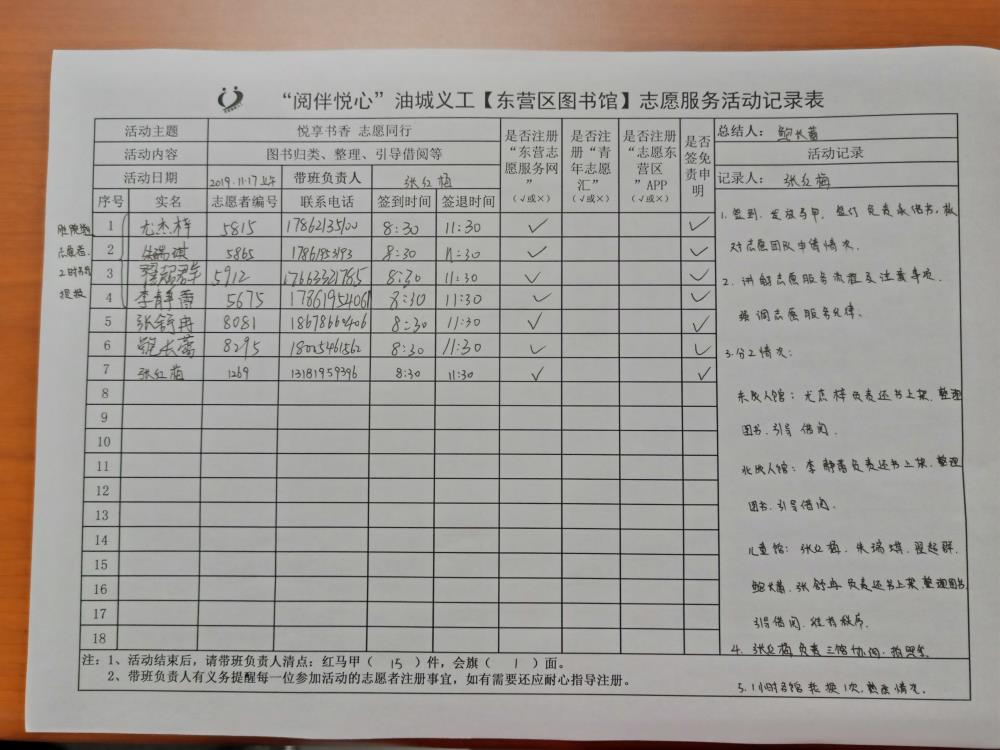 “阅伴悦心”油城义工【东营区图书馆】志愿服务活动记录表
活动主题 悦享书香 志愿同行
活动内容 图书归类、整理、引导借阅等
活动日期 2019.11.17上午 带班负责人 张红梅
序号 实名 志愿者编号 联系电话 签到时间 签退时间 是否注册“东营志愿服务网”(√或×) 是否注册“青年志愿汇”(√或×) 是否注册“志愿东营区”APP(√或×) 是否签免责申明
1 尤杰梓 5815 17862135100 8:30 11:30 √ √
2 朱瑞琪 5865 8:30 11:30 √ √
3 翟超群 5912 17663321785 8:30 11:30 √ √
4 李静蕾 5675 17861954061 8:30 11:30 √ √
5 张舒冉 8081 18678660406 8:30 11:30 √ √
6 鲍长蕾 8295 18005461562 8:30 11:30 √ √
7 张红梅 1269 13181959396 8:30 11:30 √ √
8
9
10
11
12
13
14
15
16
17
18
注：1、活动结束后，请带班负责人清点：红马甲（ 15 ）件，会旗（ 1 ）面。
2、带班负责人有义务提醒每一位参加活动的志愿者注册事宜，如有需要还应耐心指导注册。
总结人： 鲍长蕾
活动记录
记录人： 张红梅
1. 签到、发放马甲、签订免责承诺书，
对志愿团队申请情况.
2. 讲解志愿服务流程及注意事项.
强调志愿服务纪律.
3.分工情况：
未成人馆：尤杰梓负责还书上架、整理
图书、引导借阅.
北成人馆：李静蕾负责还书上架、整理
图书、引导借阅.
儿童馆：张红梅、朱瑞琪、翟超群、
鲍长蕾、张舒冉负责还书上架、整理图书
引导借阅、维持秩序.
4. 张红梅负责三馆协调、拍照等.
5. 1小时各馆轮换1次，熟悉情况.
志愿者